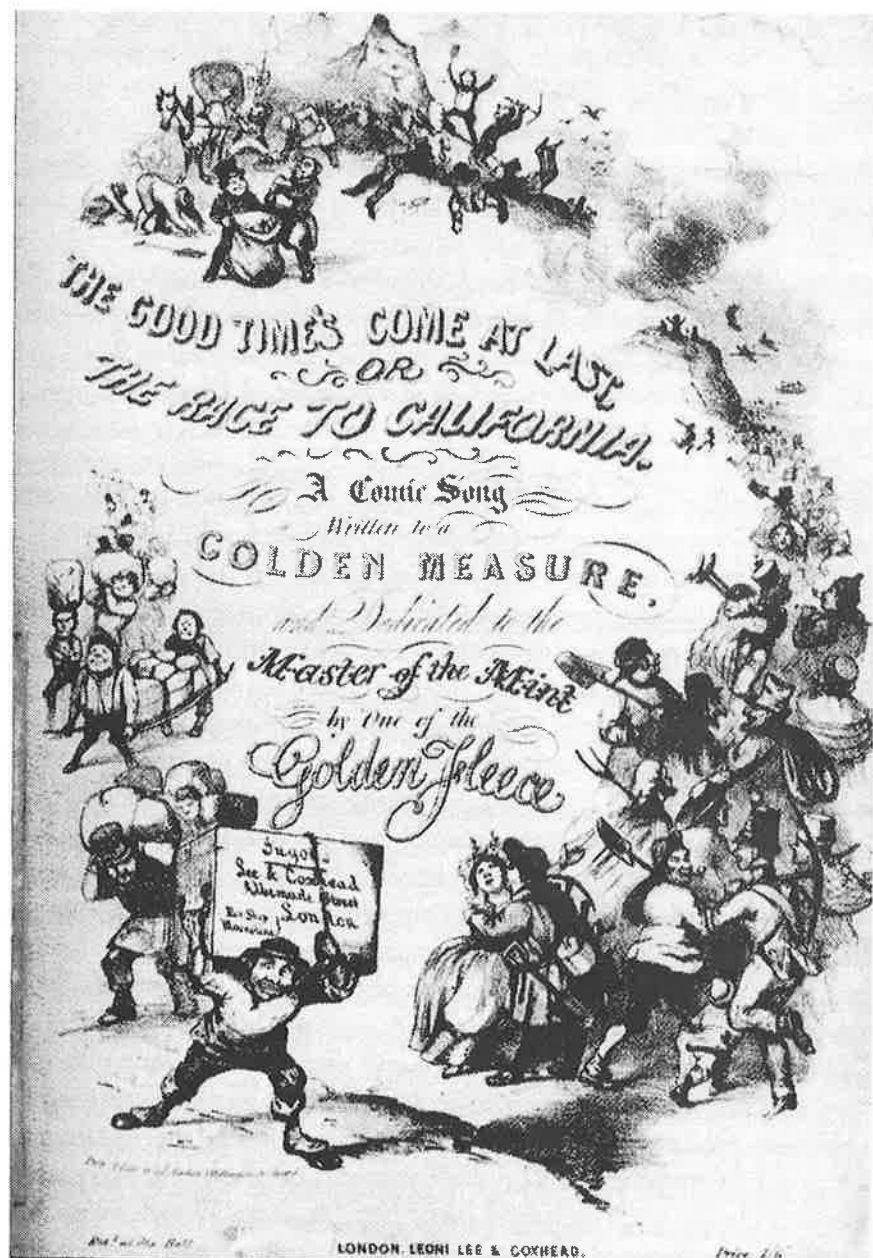 THE GOOD TIME'S COME AT LAST,
OR
THE RACE TO CALIFORNIA.
A Comic Song
Written to a
GOLDEN MEASURE,
and Dedicated to the
Master of the Mint
by One of the
Golden Fleece
Lee & Coxhead
Albemarle Street
London
Per Ship
Ent. at Sta. Hall
LONDON, LEONI LEE & COXHEAD.
Price